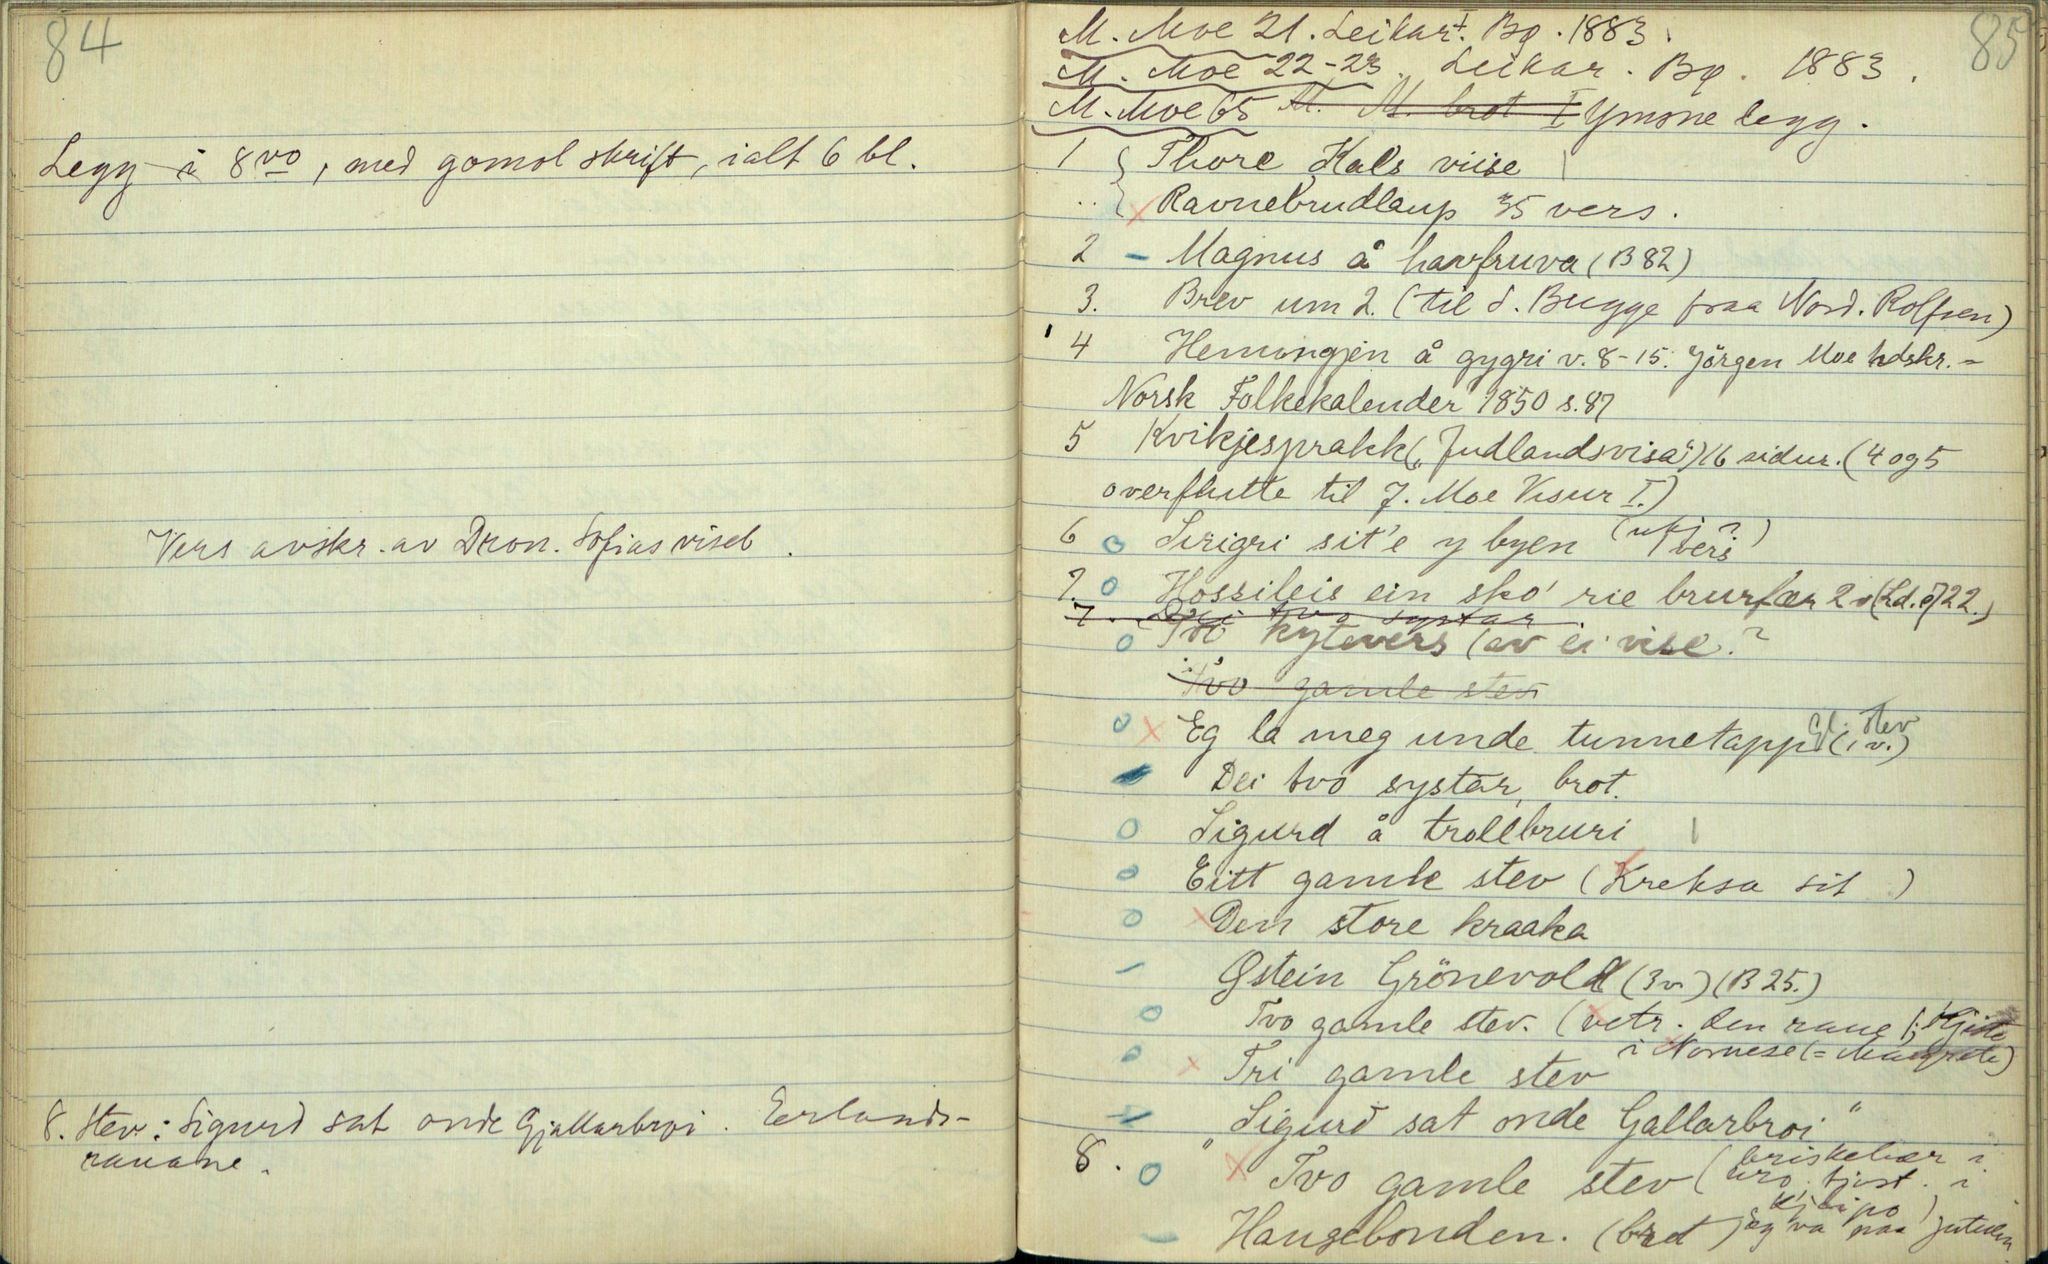 84
Legg i 8vo, med gomol skrift, ialt 6 bl.
Vers avskr. av Dron. Sofias viseb.
8. Stev: Sigurd sat onde Gjallarbroi. Erlands-
rauane.
85
M. Moe 21. Leikar I. Bø. 1883.
M. Moe 22-23. Leikar. Bø. 1883.
M. Moe 65 M. M. brot I Ymsne legg.
1 { Thore Kals viise
.. { x Ravnebrudlaup 35 vers.
2 - Magnus å havfruva (B 82)
3. Brev um 2. (til S. Bugge fraa Nord. Rolfsen)
4 Hemingjen å gygri v. 8-15. Jörgen Moe hdskr. =
Norsk Folkekalender 1850 s. 87
5 Kvikjesprakk („Judlandsvisa“) 16 sidur. (4 og 5
overflutte til J. Moe Visur I.)
6 o Sirigri sit'e y byen 1 vers
7. o Hossileis ein sko' rie brurfær 2 (Ld. 722.)
7. Dei tvo systar
o Tvo kytevers (av ei vise?
Tvo gamle stev
o x Eg la meg unde tunnetapp Gl. stev (1 v.)
Dei tvo systar, brot.
o Sigurd å trollbruri
o Eitt gamle stev (Kreksa sit )
o x Den store kraaka
- Østein Grönevold (3 v.) (B 25.)
o Tvo gamle stev. (vetr. den raue
i Nornese (= Maugrete)
o x Tri gamle stev
„Sigurd sat onde Gallarbroi“
8. o x Tvo gamle stev (briskebær i
uro. tjust. i
Haugebonden. (brot) eg va paa jutulen